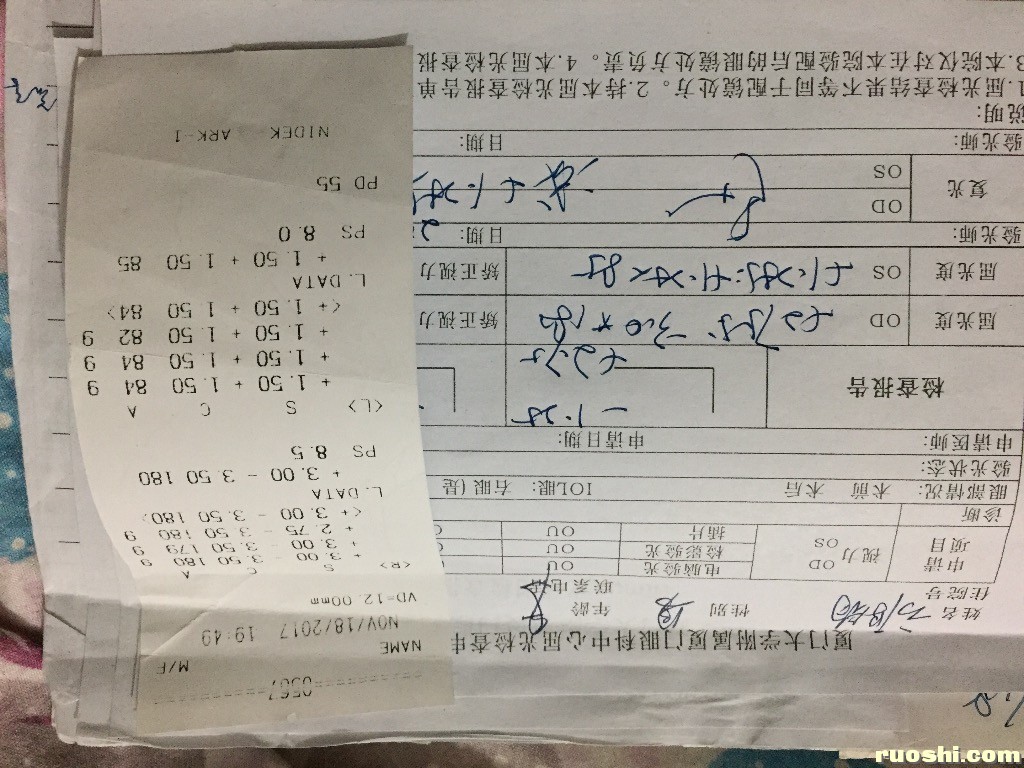 0567
NAME M/F
NOV/18/2017 19:49
VD=12.00mm
<R> S C A
+ 3.00 - 3.50 180 9
+ 3.00 - 3.50 179 9
+ 2.75 - 3.50 180 9
<+ 3.00 - 3.50 180>
L.DATA
+ 3.00 - 3.50 180
PS 8.5
<L> S C A
+ 1.50 + 1.50 84 9
+ 1.50 + 1.50 84 9
+ 1.50 + 1.50 82 9
<+ 1.50 + 1.50 84>
L.DATA
+ 1.50 + 1.50 85
PS 8.0
PD 55
NIDEK ARK-1
厦门大学附属厦门眼科中心屈光检查
姓名 性别 年龄
住院号 联系电话
申请项目 视力 OD OS
电脑验光 OU
检影验光 OU
插片 OU
诊断
眼部情况: 术前 术后 IOL眼: 右眼(是)
验光状态:
申请医师: 申请日期:
检查报告
-1.25
+2.75
屈光度 OD 矫正视力
屈光度 OS 矫正视力
验光师: 日期:
复光 OD
OS
验光师: 日期:
说明:
1.屈光检查结果不等同于配镜处方。2.持本屈光检查报告单
3.本院仅对在本院验配后的眼镜处方负责。4.本屈光检查报
ruoshi.com